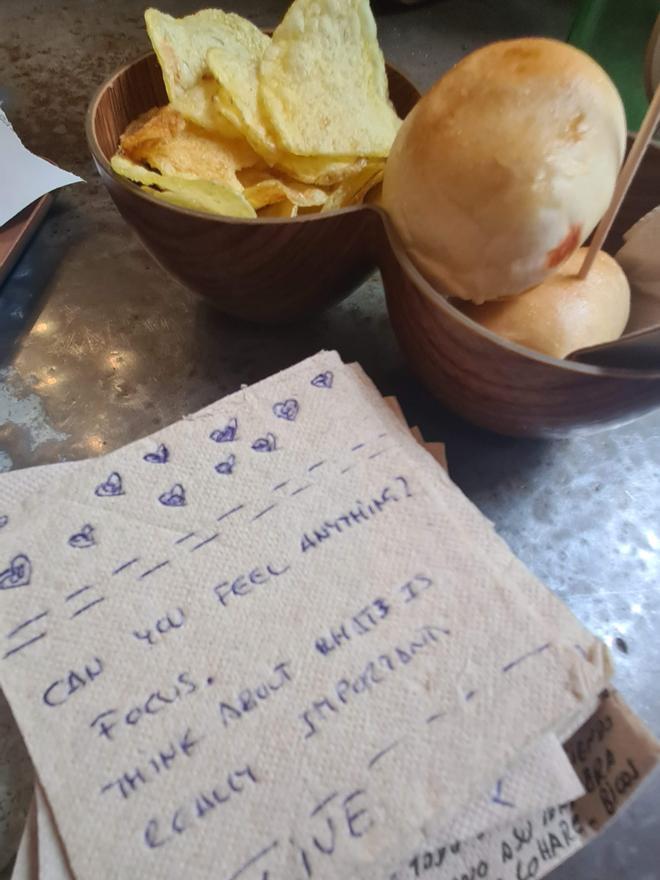 CAN YOU FEEL ANYTHING?
FOCUS.
THINK ABOUT WHATS IS
REALLY IMPORTANT.
LIVE